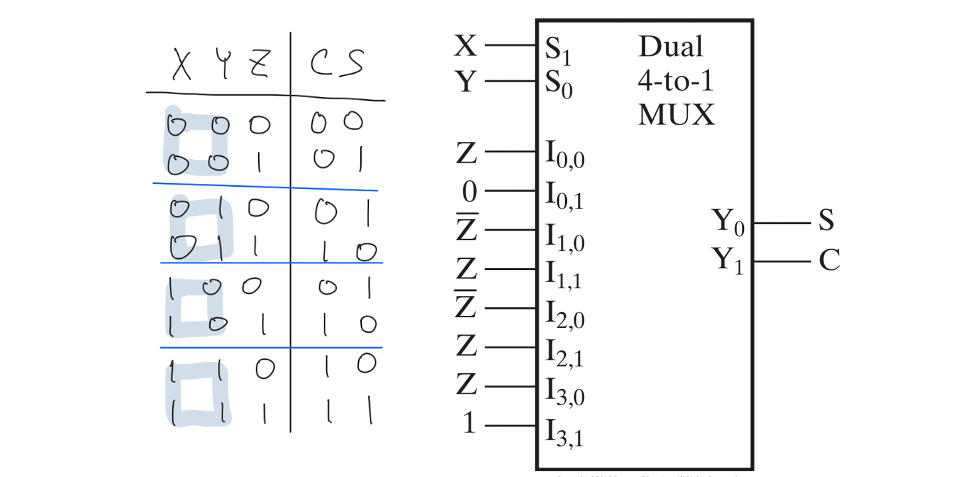 X Y Z C S
0 0 0 0 0
0 0 1 0 1
0 1 0 0 1
0 1 1 1 0
1 0 0 0 1
1 0 1 1 0
1 1 0 1 0
1 1 1 1 1
X S₁ Dual
Y S₀ 4-to-1
MUX
Z I₀,₀
0 I₀,₁
Z̅ I₁,₀ Y₀ S
Z I₁,₁ Y₁ C
Z̅ I₂,₀
Z I₂,₁
Z I₃,₀
1 I₃,₁